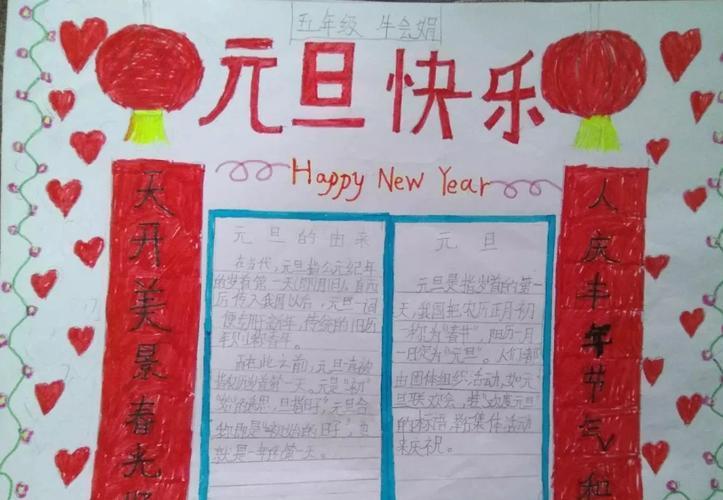 五年级 牛会娟
元旦快乐
Happy New Year
天开美景春光
人庆丰年节气和
元旦的由来
在当代,元旦指公元纪年
的岁首第一天(1月1日)。自西
历传入我国以后,元旦一词
便专用于新年,传统的旧历
年则称春节。
而在此之前,元旦一直被
第一天。元是"初"
"始"的意思,旦指"日子",元旦合
称即是"初始的日子",也
就是一年的第一天。
元旦
元旦是指岁首的第一
天,我国把农历正月初
一称为"春节",阳历一月
一日定为"元旦"。人们
由团体组织活动,如元
旦联欢会,挂"欢度元旦"
的标语,集体活动
来庆祝。